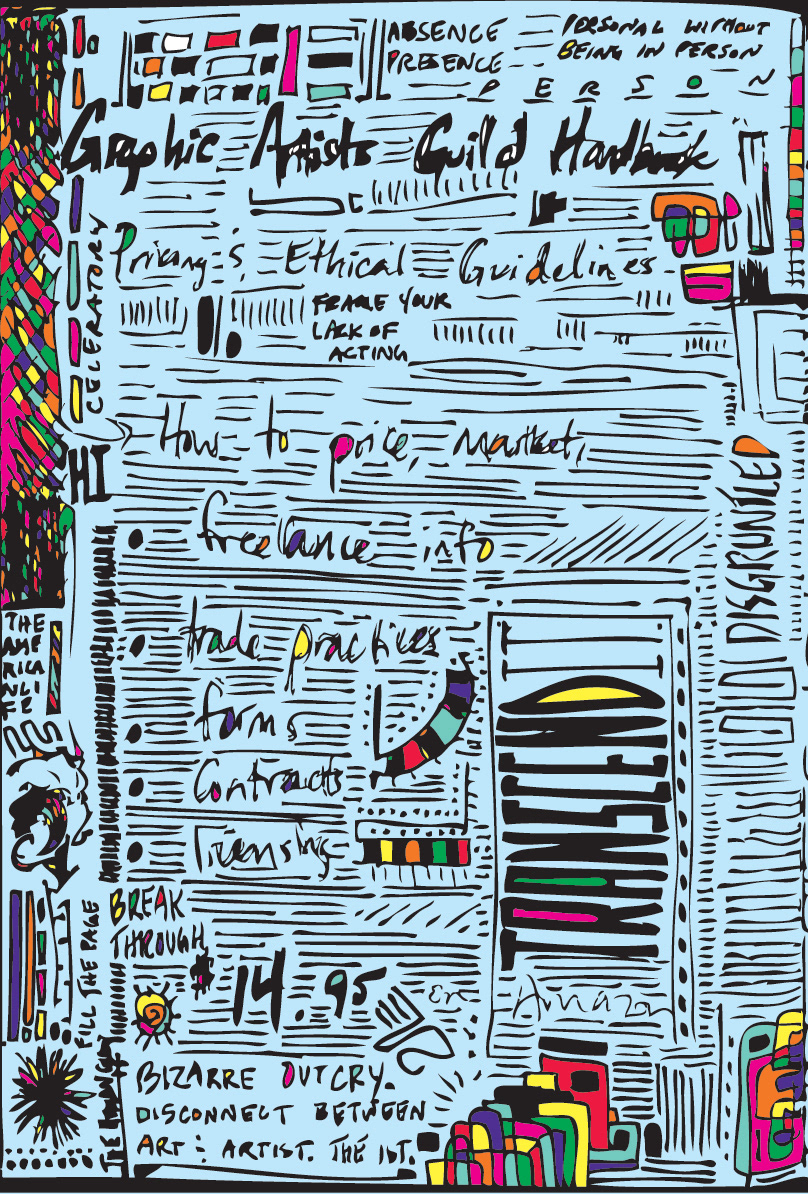 ABSENCE
PRESENCE
PERSONAL WITHOUT
BEING IN PERSON
PERSON
Graphic Artists Guild Handbook
Pricing & Ethical Guidelines
FRAME YOUR
LACK OF
ACTING
CELEBRATORY
How to price, market,
HI
freelance info
DISGRUNTLED
trade practices
forms
Contracts
Licensing
THE
AME
RICA
N LI
FE
TRANSCEND IT
BREAK
THROUGH
FILL THE PAGE
$14.95
on Amazon
BIZARRE OUTCRY.
DISCONNECT BETWEEN
ART & ARTIST. THE 1ST.